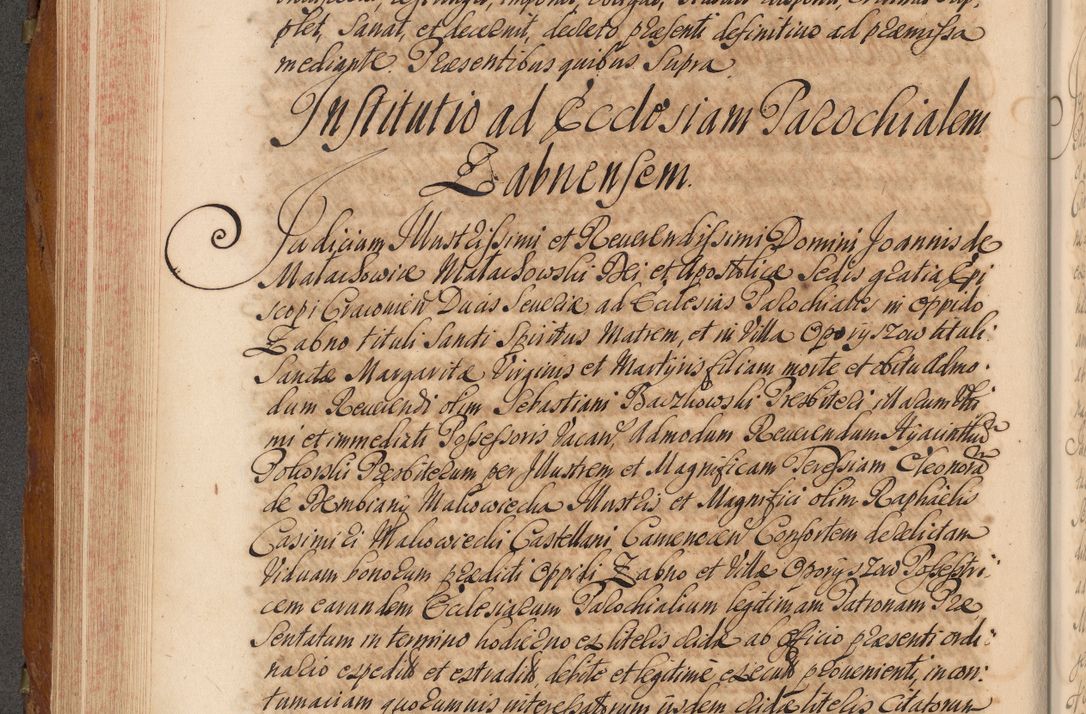 plet, Sanat, et decernit, decreto præsenti definitivo ad præmissa
mediante. Præsentibus quibus Supra.
Institutio ad Ecclesiam Parochialem
Żabnensem.
Judicium Illustrissimi et Reverendissimi Domini Joannis de
Małachowice Małachowski Dei et Apostolicæ Sedis gratia Epi
scopi Cracovien Ducis Severiæ ad Ecclesias Parochiales, in Oppido
Żabno tituli Sancti Spiritus Matrem, et in Villa Oporyszow tituli
Sanctæ Margaritæ Virginis et Martyris filiam morte et obitu Admo
dum Reverendi olim Sebastiani Presbiteri illarum Ulti
mi et immediati Possessoris Vacan. Admodum Reverendum Hyacinthum
Presbiterum per Illustrem et Magnificam Teressiam Eleonora
de Dembiany Maliowiecka Illustris et Magnifici olim Raphaelis
Casimiri Maliowiecki Castellani Camenecen Consortem derelictam
Viduam bonorum prædicti Oppidi Żabno et Villæ Oporyszow Possestri
cem earundem Ecclesiarum Parochialium legitimam Patronam Præ
sentatum in termino hodierno ex literis cridæ ab Officio præsenti ordi
nario expeditis et extraditis, debite et legitime executis provenienti, in con
tumaciam quorumvis interessatorum iisdem cridæ literis Citatorum